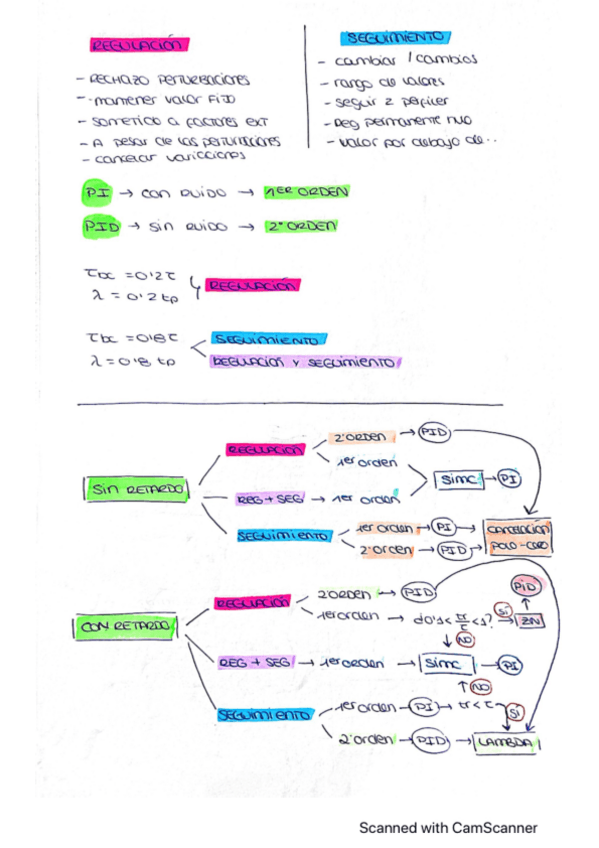 REGULACIÓN
- RECHAZO PERTURBACIONES
- mantener valor FIJO
- sometido a factores EXT
- A pesar de las perturbaciones
- cancelar variaciones
SEGUIMIENTO
- cambiar / cambios
- rango de valores
- seguir 2 perfiles
- Reg permanente nuo
- valor por debajo de..
PI → con ruido → 1ER ORDEN
PID → sin ruido → 2º ORDEN
τbc = 0'2τ
λ = 0'2 tp
REGULACIÓN
τbc = 0'8τ
λ = 0'8 tp
SEGUIMIENTO
REGULACIÓN Y SEGUIMIENTO
SIN RETARDO
REGULACIÓN
2º ORDEN → PID
1er orden
REG + SEG → 1er orden
SIMC → PI
SEGUIMIENTO
1er orden → PI →
2º orden → PID →
CANCELACIÓN
POLO-CERO
CON RETARDO
REGULACIÓN
2º ORDEN → PID
1er orden → d0'1< tr/τ <1? SI → ZN
PID
NO
REG + SEG → 1er orden → SIMC → PI
NO
SEGUIMIENTO
1er orden → PI → tr<τ SI
2º orden → PID → LAMBDA
Scanned with CamScanner